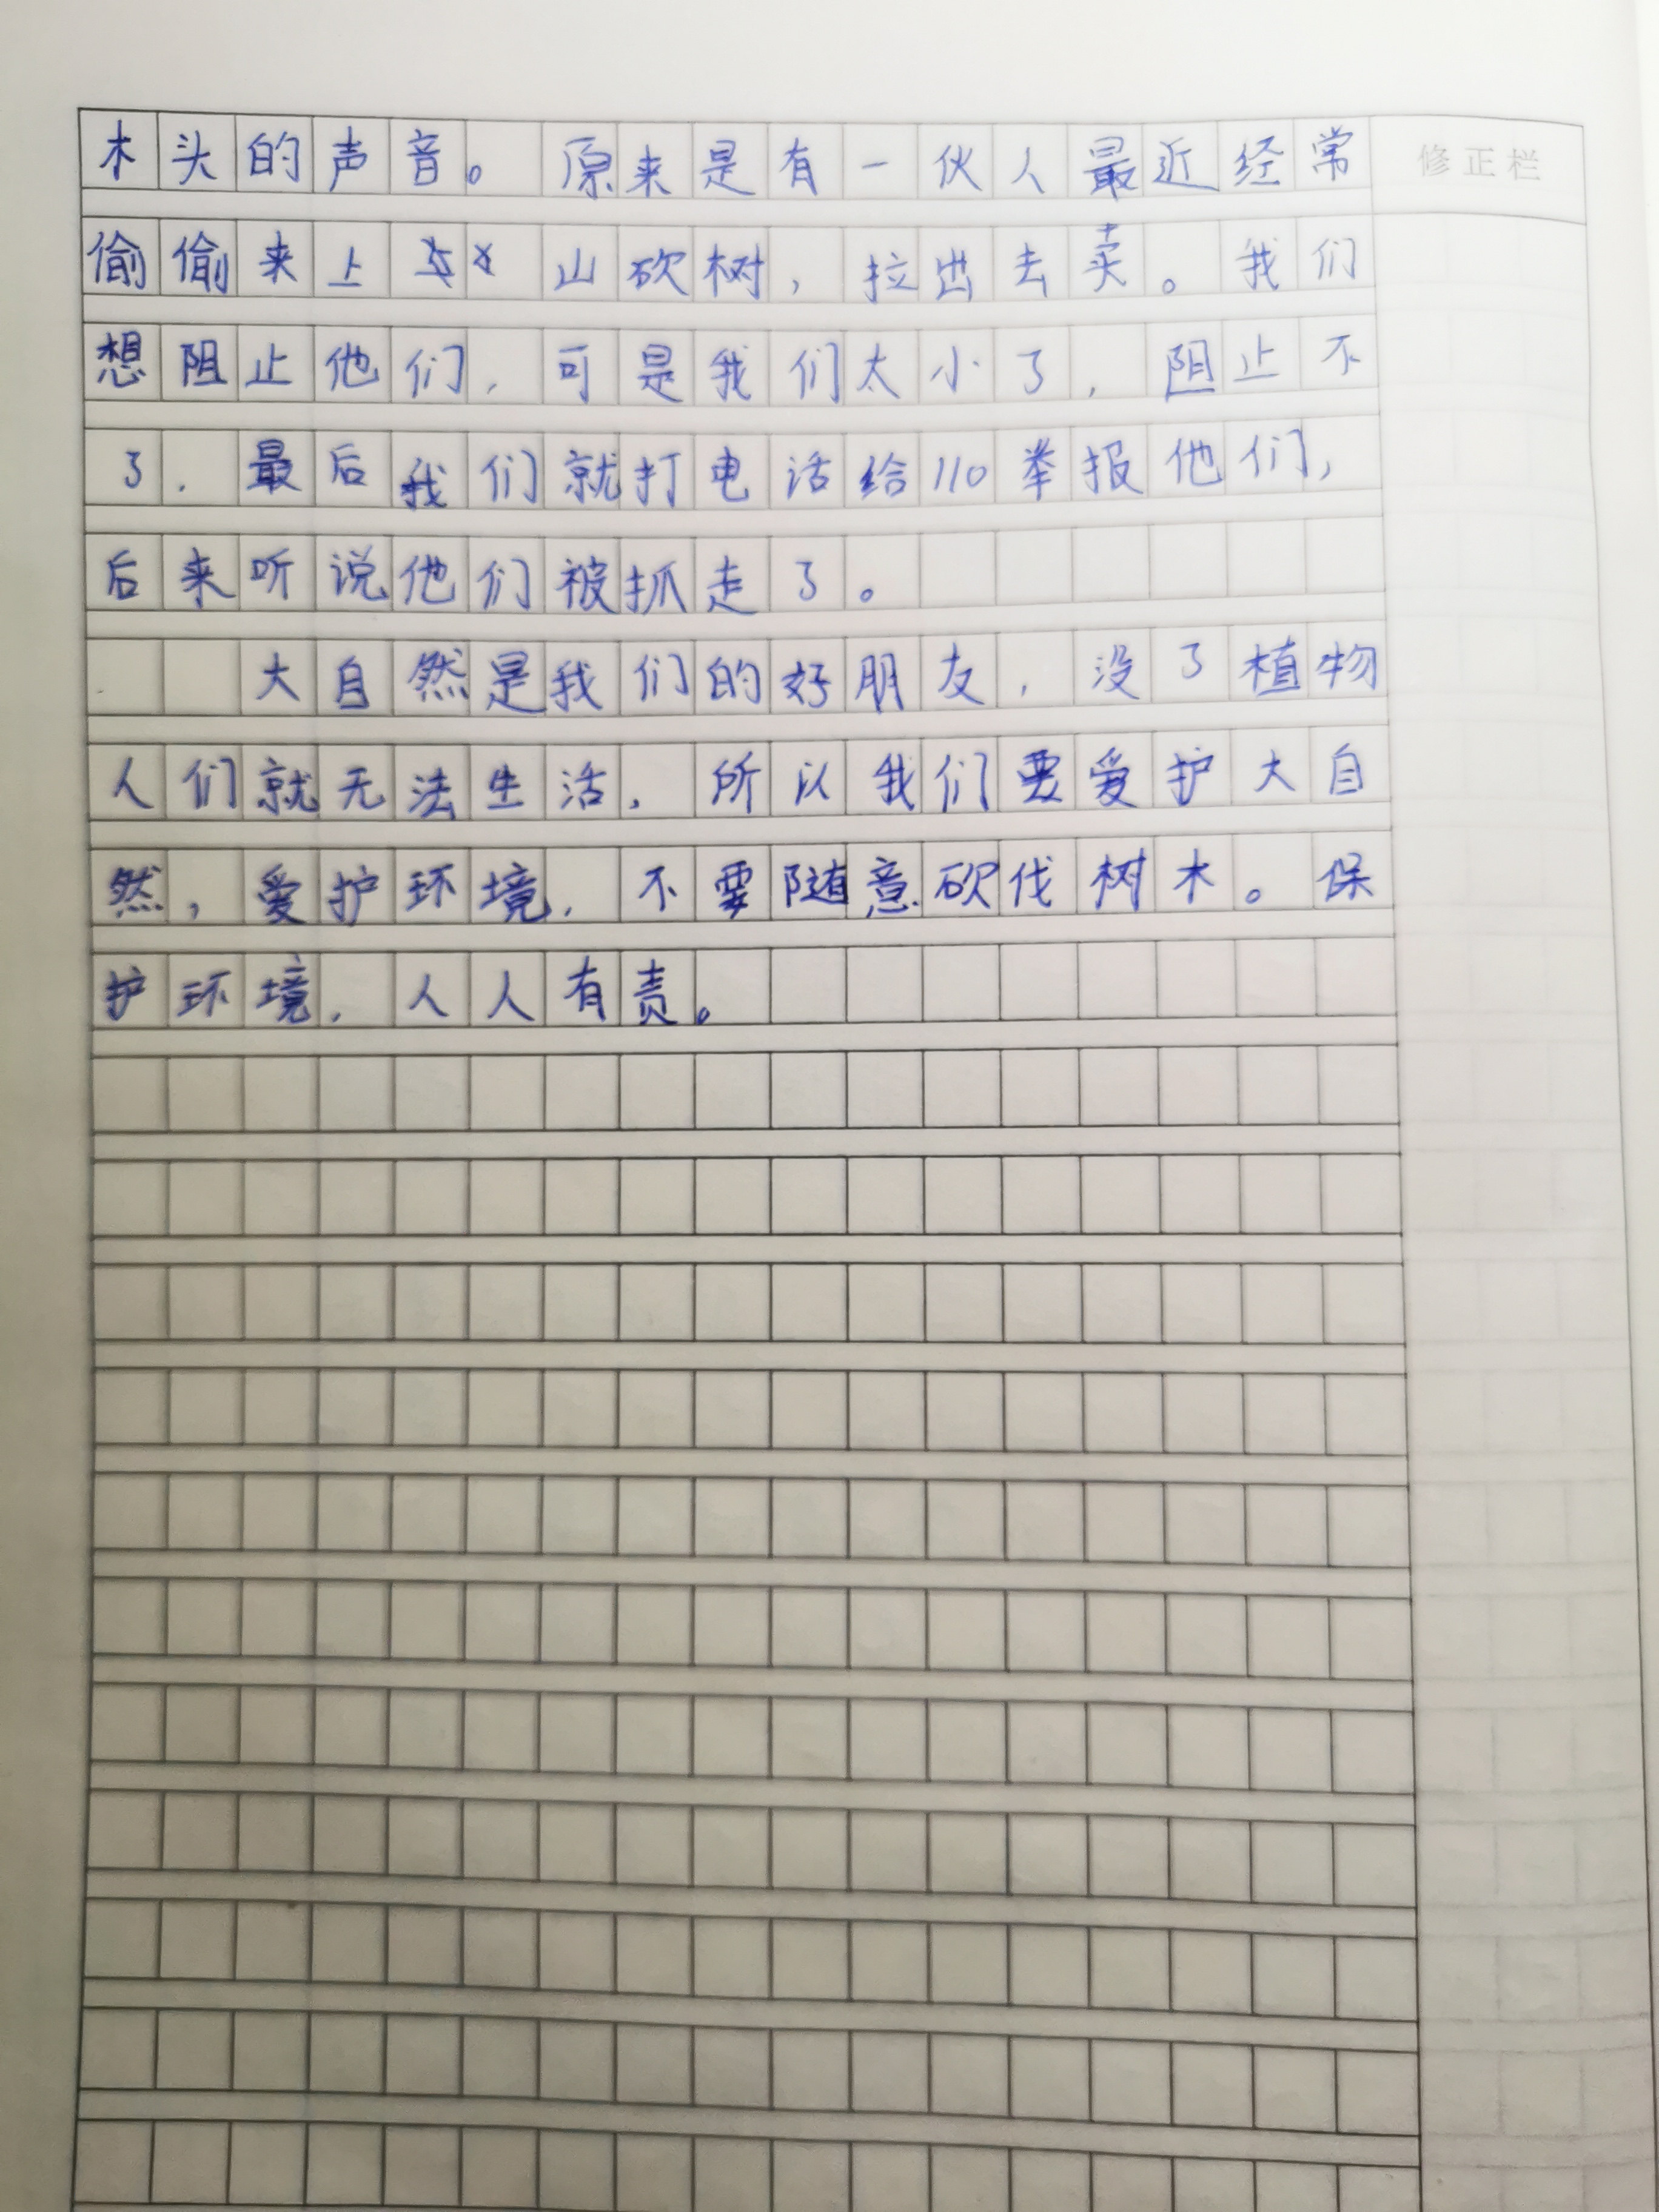 木头的声音。原来是有一伙人最近经常
修正栏
偷偷来上山砍树,拉出去卖。我们
想阻止他们,可是我们太小了,阻止不
了.最后我们就打电话给110举报他们,
后来听说他们被抓走了。
大自然是我们的好朋友,没了植物
人们就无法生活,所以我们要爱护大自
然,爱护环境,不要随意砍伐树木。保
护环境,人人有责。